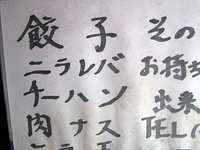 餃子 その
ニラレバ お持ち
チーハン 出来
肉ナス TEL